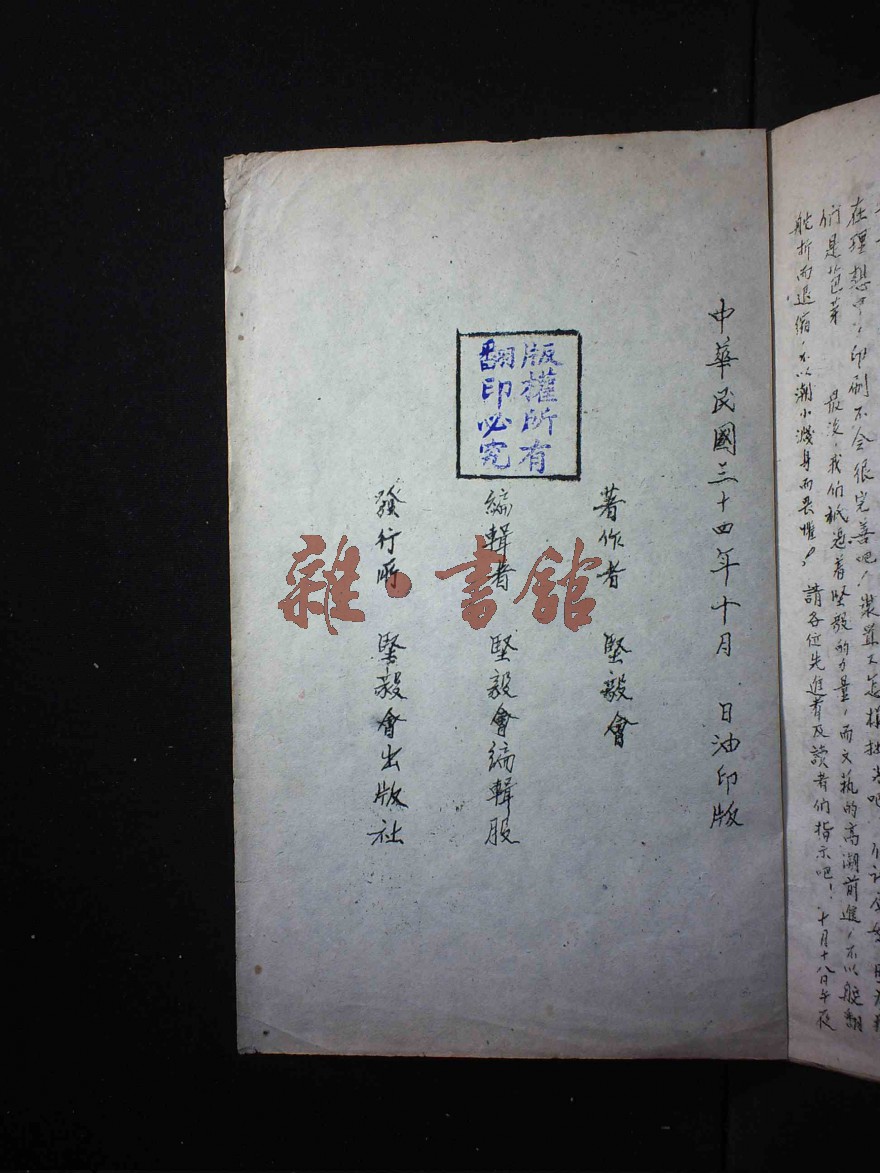 在理想中，印刷不会很完善吧！裝置
們是笆芽 最後，我們祇追着堅毅的力量，而文藝的高潮前進，不以船翻
舵折而退縮，不以潮小濺身而畏懼！ 請各位先進者及讀者們指示吧！ 十月十八日午夜
中華民國三十四年十月 日油印版
著作者 堅毅會
版權所有
翻印必究
編輯者 堅毅會編輯股
發行所 堅毅會出版社
雜·書館